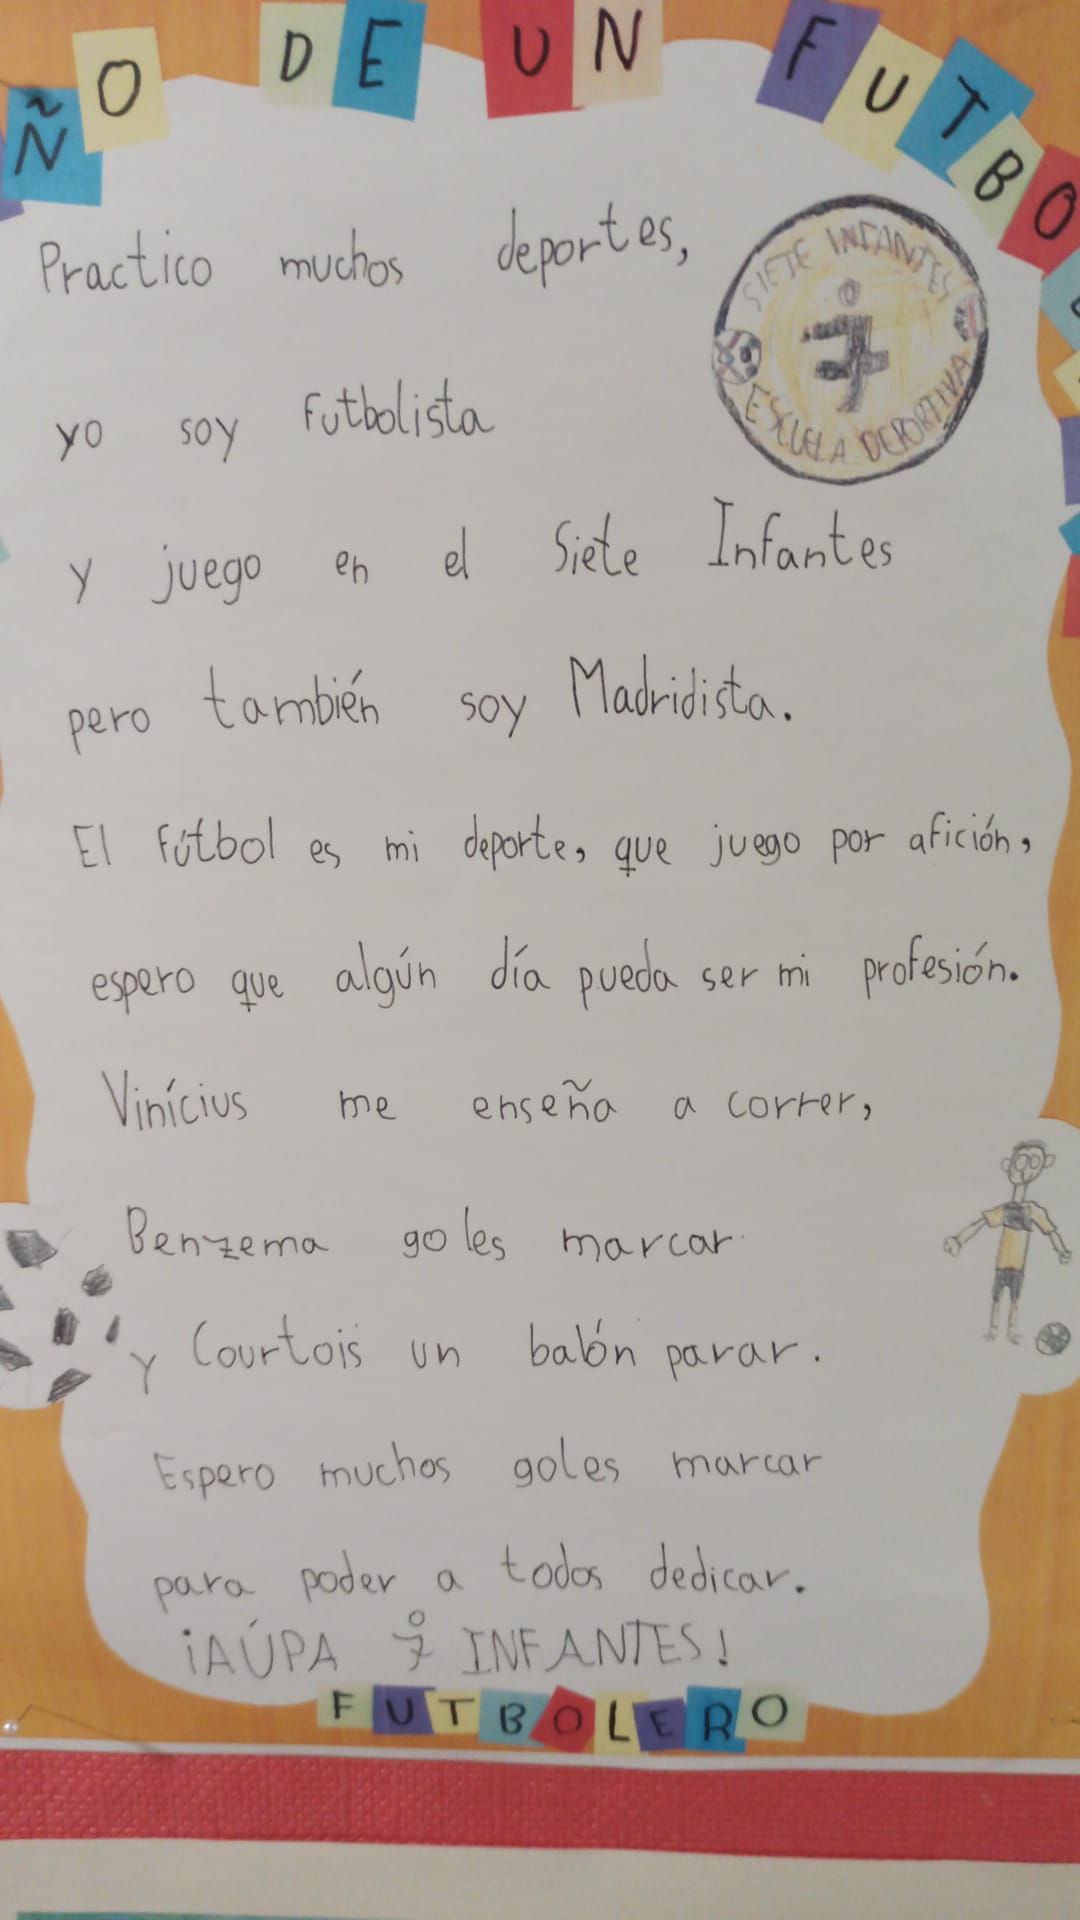 ÑO DE UN FUTBO
SIETE INFANTES
7
ESCUELA DEPORTIVA
Practico muchos deportes,
yo soy futbolista
y juego en el Siete Infantes
pero también soy Madridista.
El fútbol es mi deporte, que juego por afición,
espero que algún día pueda ser mi profesión.
Vinícius me enseña a correr,
Benzema goles marcar
y Courtois un balón parar.
Espero muchos goles marcar
para poder a todos dedicar.
¡AÚPA 7 INFANTES!
FUTBOLERO